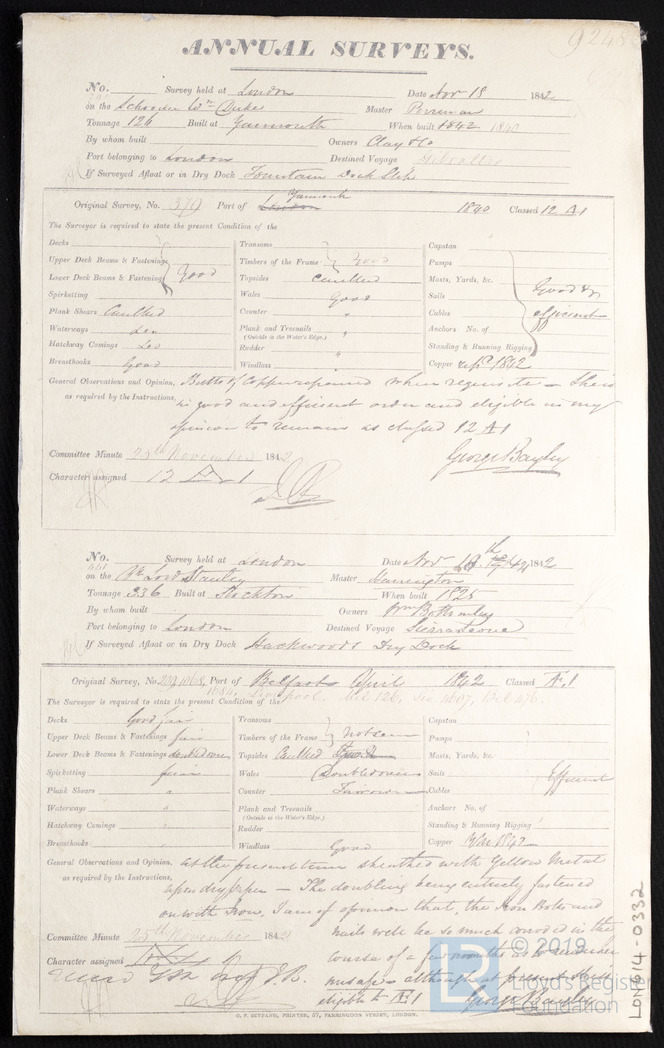 ANNUAL SURVEYS.
No. Survey held at London Date Nov 18 1842
on the Schooner Wm Duke Master
Tonnage 126 Built at Yarmouth When built 1842 1840
By whom built Owners Clay & Co
Port belonging to London Destined Voyage Gibraltar
If Surveyed Afloat or in Dry Dock Fountain Dock Slip
Original Survey, No. 379 Port of London Yarmouth 1840 Classed 12 A1
The Surveyor is required to state the present Condition of the
Decks
Upper Deck Beams & Fastenings
Lower Deck Beams & Fastenings Good
Spirketting
Plank Shears Caulked
Waterways Do
Hatchway Comings Do
Breasthooks Good
Transoms
Timbers of the Frame Good
Topsides caulked
Wales Good
Counter "
Plank and Treenails "
(Outside in the Water's Edge.)
Rudder "
Windlass
Capstan
Pumps
Masts, Yards, &c.
Sails Good &
Cables efficient
Anchors No. of
Standing & Running Rigging
Copper repd. 1842
General Observations and Opinion, Butts of Copper repaired when requisite – She is
as required by the Instructions, in good and efficient order and eligible in my
opinion to remain as classed 12 A1
Committee Minute 25th November 1842
Character assigned 12 A 1
George Bayley
No. 461 Survey held at London Date Nov 1842
on the Lord Stanley Master
Tonnage 336 Built at Stockton When built 1825
By whom built Owners Wm Bottomley
Port belonging to London Destined Voyage Sierra Leone
If Surveyed Afloat or in Dry Dock Hackwoods Dry Dock
Original Survey, No. Port of Belfast April 1842 Classed Æ 1
Liverpool
The Surveyor is required to state the present Condition of the
Decks Good fair
Upper Deck Beams & Fastenings fair
Lower Deck Beams & Fastenings
Spirketting fair
Plank Shears "
Waterways "
Hatchway Comings "
Breasthooks
Transoms
Timbers of the Frame not seen
Topsides Caulked
Wales Doubled over
Counter
Plank and Treenails
(Outside in the Water's Edge.)
Rudder
Windlass Good
Capstan
Pumps
Masts, Yards, &c.
Sails Efficient
Cables
Anchors No. of
Standing & Running Rigging
Copper 1842
General Observations and Opinion, at the present time sheathed with Yellow Metal
as required by the Instructions, upon dry paper – The doubling being entirely fastened
on with Iron, I am of opinion that, the Iron Bolts and
nails will be so much corroded in the
course of a few months as to render her
unsafe – although at present
eligible to Æ 1
Committee Minute 25th November 1842
Character assigned
George Bayley
© 2019
LR Lloyd's Register
Foundation
G. F. SEYFANG, PRINTER, 57, FARRINGDON STREET, LONDON.
LON614-0332